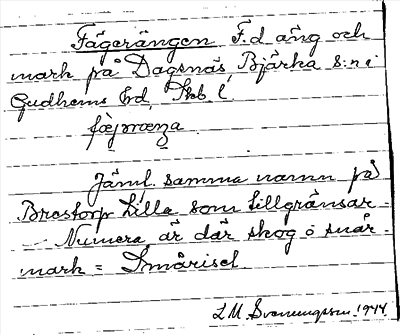 Fägerängen F.d äng och
mark på Dagsnäs, Bjärka s:n i
Gudhems hd, Skb. l.
Jämf. samma namn på
Brestorp Lilla som tillgränsar
Numera är där skog o snår
mark = Smårisel
L M Svenungsson 1944